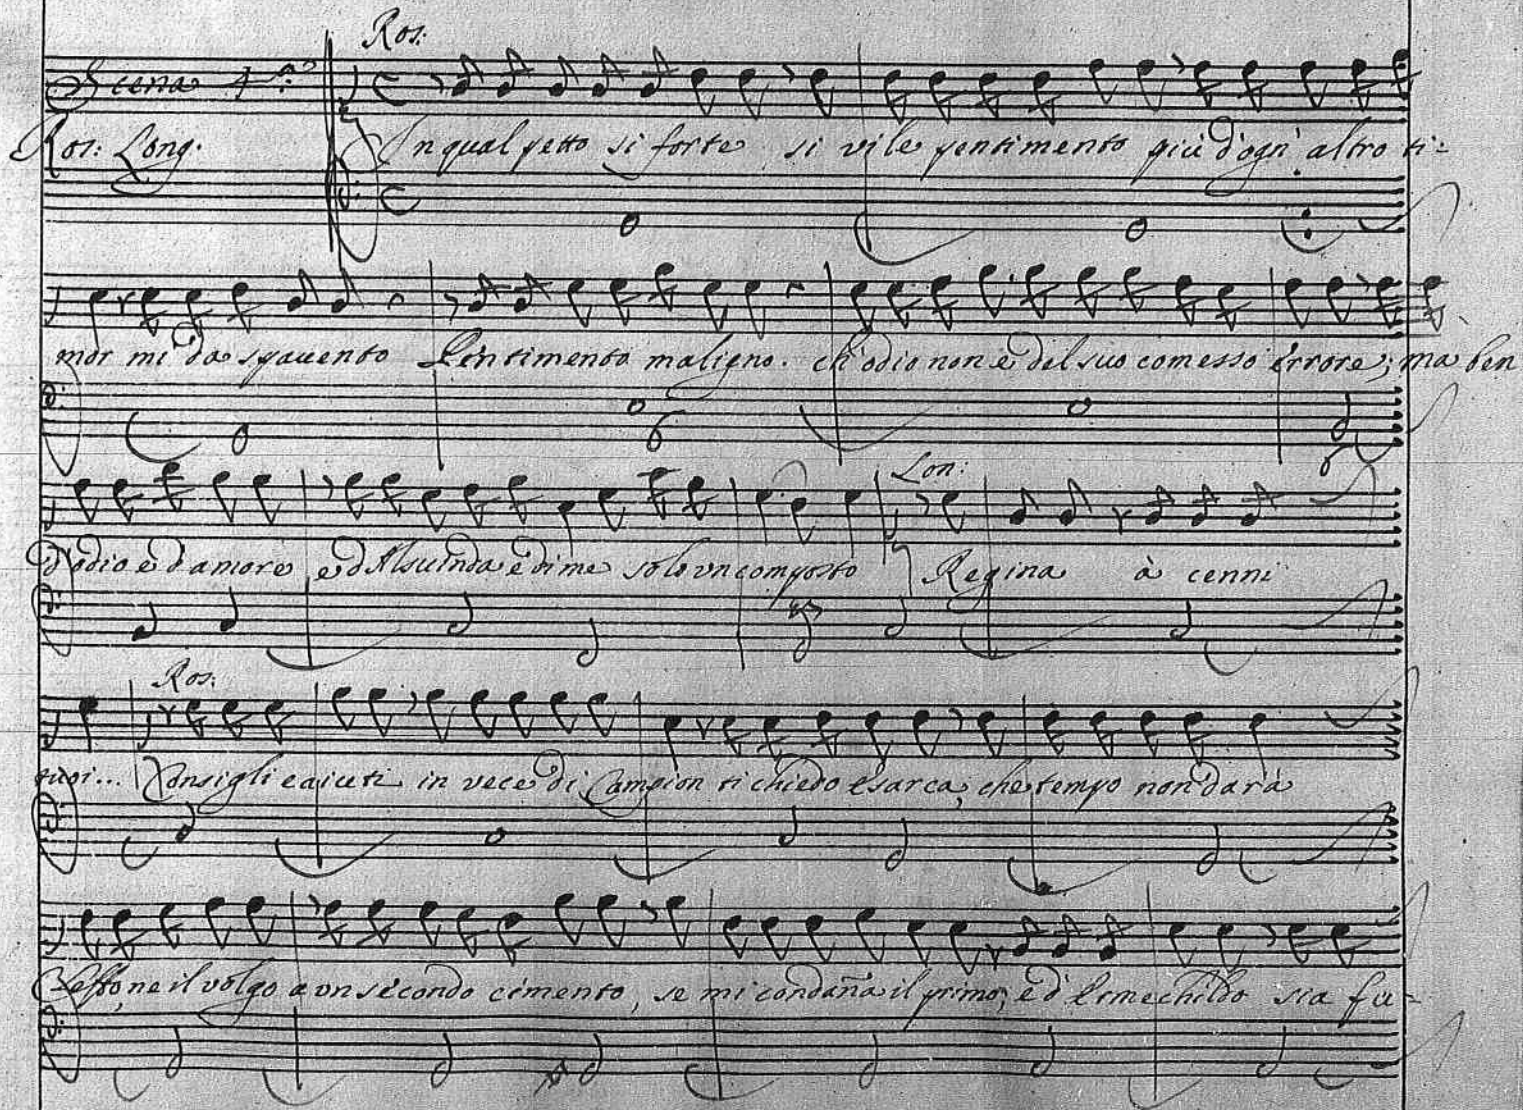 Ros:
Scena 4.ª
Ros: Long.
In qual petto si forte si vile sentimento più d'ogn' altro ti=
mor mi da spavento Sentimento maligno. ch'odio non è del suo comesso errore; ma ben
Lon:
d'odio e d'amore e d'Alsuinda e di me solo un composto Regina à cenni
Ros:
tuoi... Consigli e aiuti in vece di Campion ti chiedo Esarca, che tempo non darà
il volgo a un secondo cimento, se mi condaña il primo, ed Elmechildo sia fu=